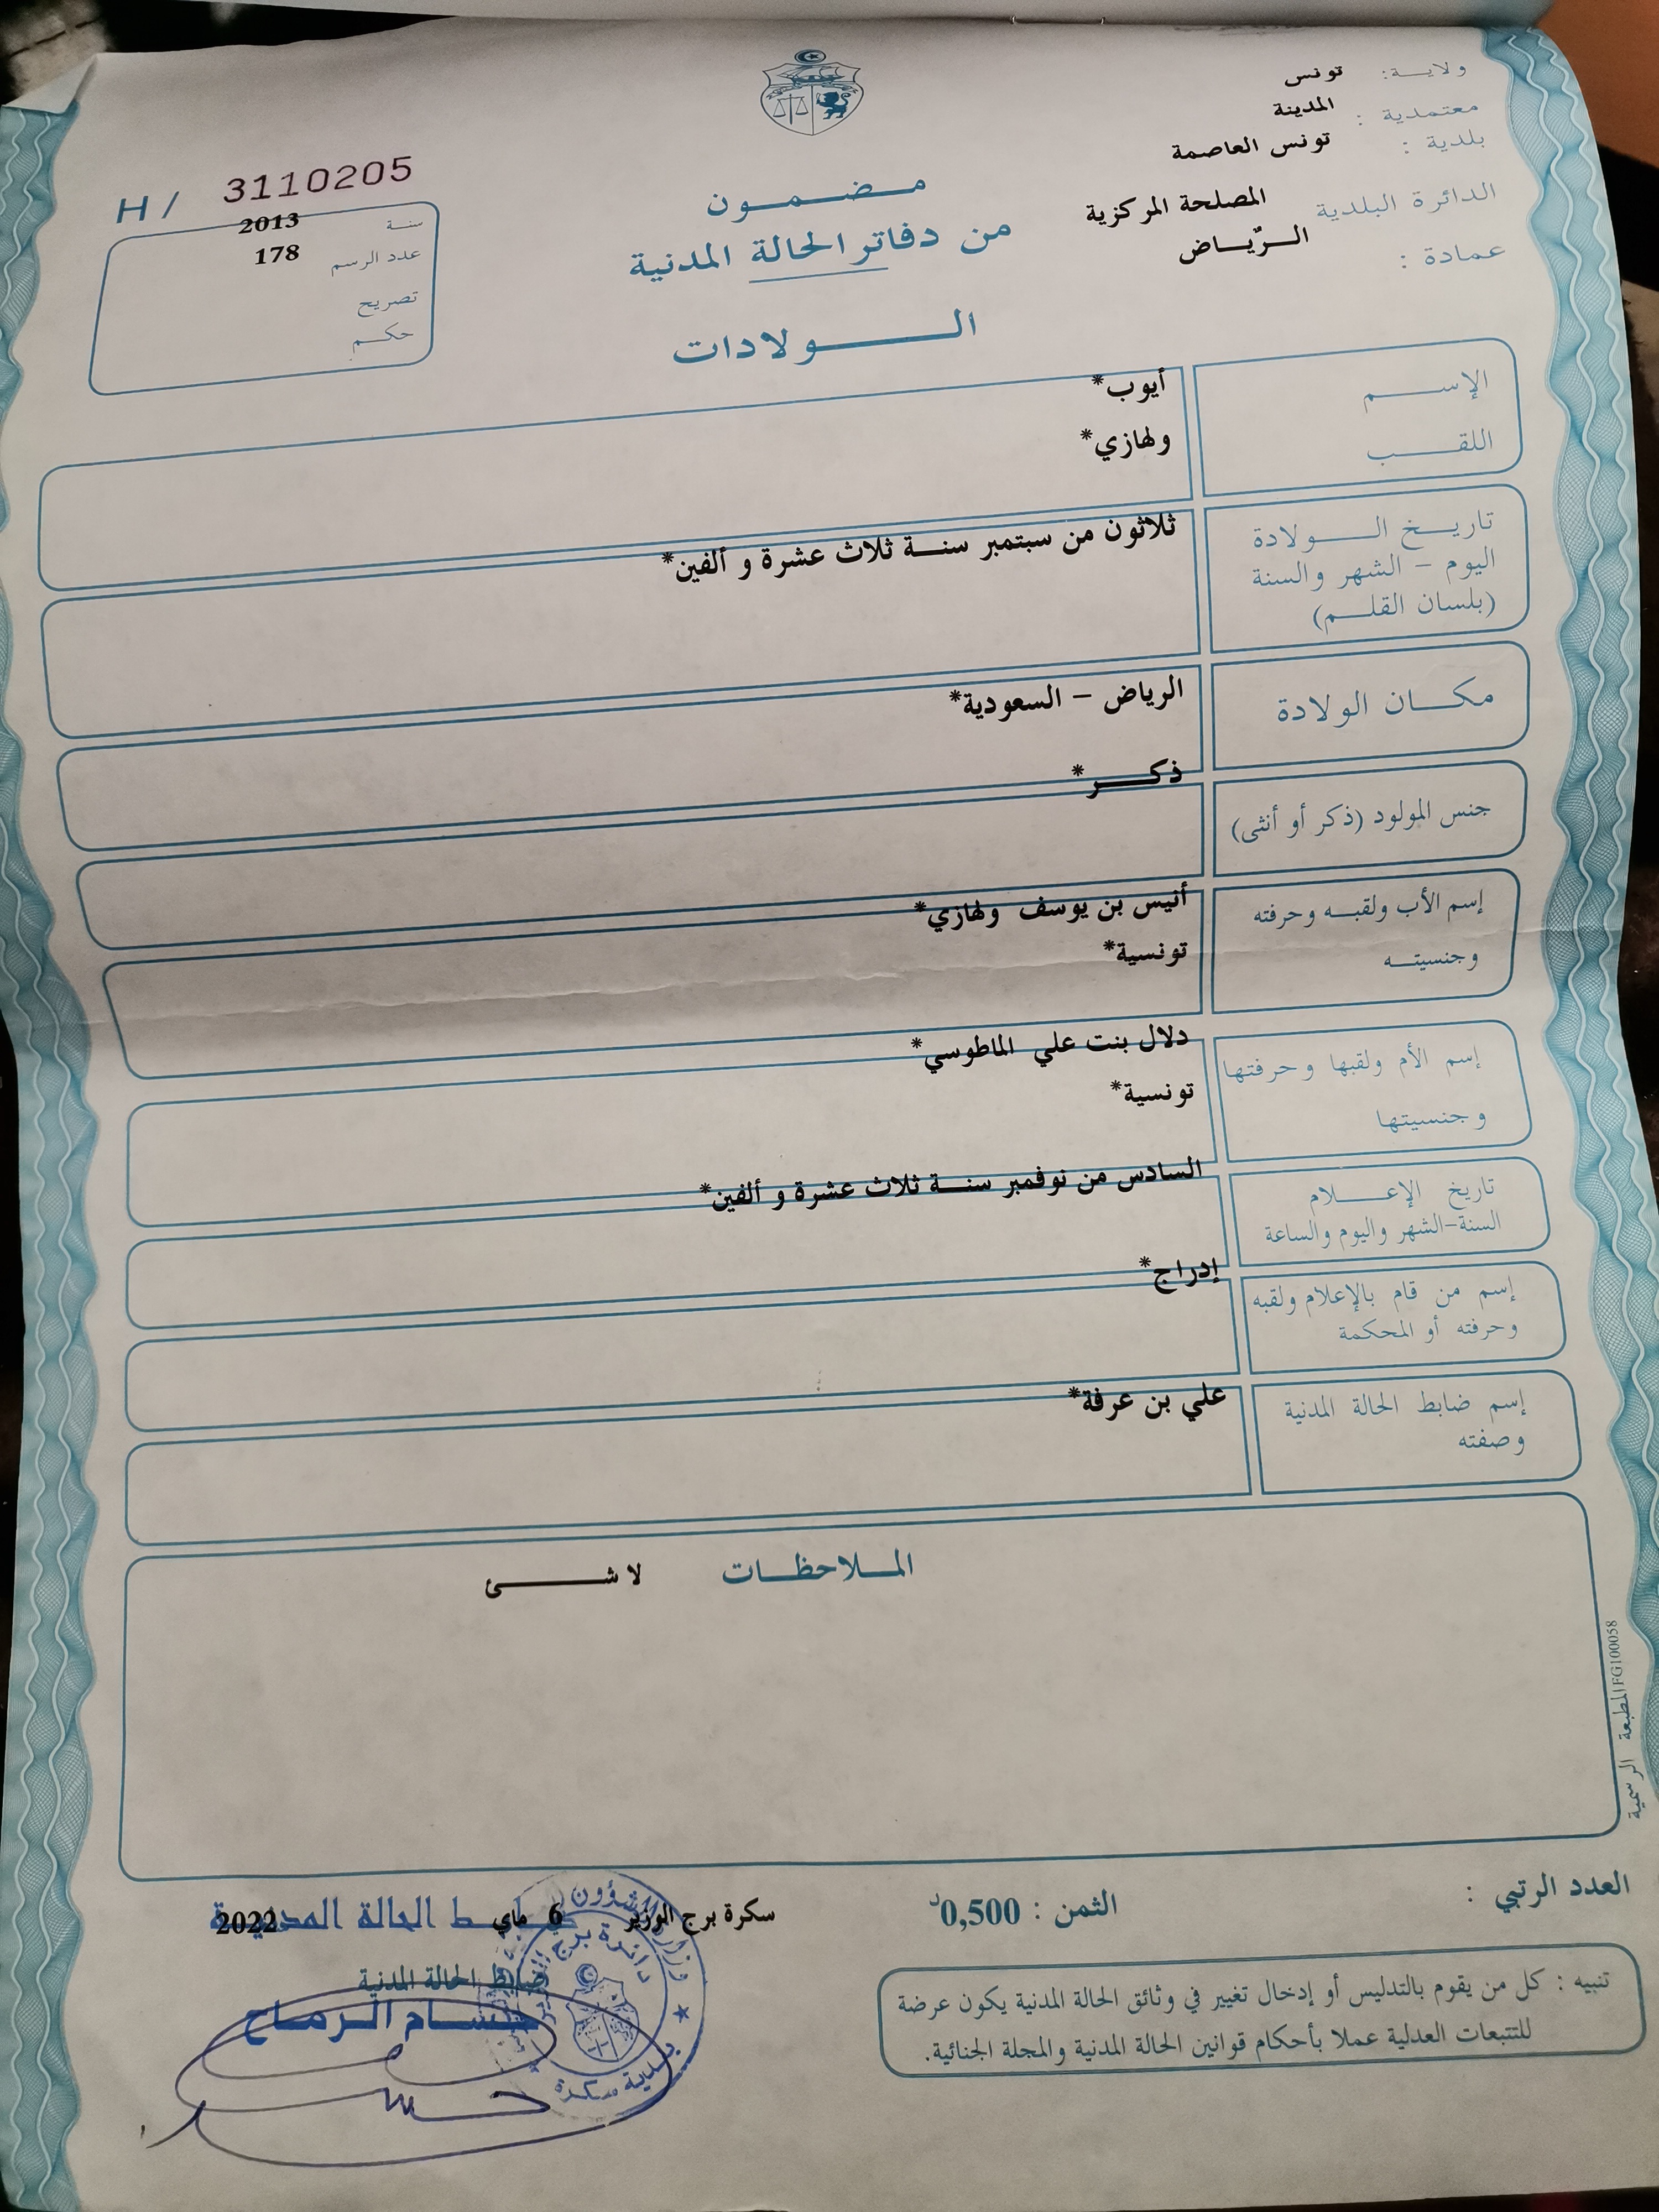 ولاية: تونس
معتمدية : المدينة
بلدية : تونس العاصمة
الدائرة البلدية المصلحة المركزية
عمادة : الريّاض
مضمون
من دفاتر الحالة المدنية
الولادات
H / 3110205
سنة 2013
عدد الرسم 178
تصريح
حكم
الإسم أيوب*
اللقب ولهازي*
تاريخ الولادة ثلاثون من سبتمبر سنة ثلاث عشرة و ألفين*
اليوم - الشهر والسنة
(بلسان القلم)
مكان الولادة الرياض - السعودية*
جنس المولود (ذكر أو أنثى) ذكر*
إسم الأب ولقبه وحرفته أنيس بن يوسف ولهازي*
وجنسيته تونسية*
إسم الأم ولقبها وحرفتها دلال بنت علي الماطوسي*
وجنسيتها تونسية*
تاريخ الإعلام السادس من نوفمبر سنة ثلاث عشرة و ألفين*
السنة-الشهر واليوم والساعة
إسم من قام بالإعلام ولقبه إدراج*
وحرفته أو المحكمة
إسم ضابط الحالة المدنية علي بن عرفة*
وصفته
الملاحظات لا شئ
المطبعة الرسمية FG100058
العدد الرتبي :
الثمن : 0,500د
سكرة برج الوزير 6 ماي 2022
ضابط الحالة المدنية
ضابط الحالة المدنية
حسام الرماح
دائرة برج الوزير
بلدية سكرة
تنبيه : كل من يقوم بالتدليس أو إدخال تغيير في وثائق الحالة المدنية يكون عرضة
للتتبعات العدلية عملا بأحكام قوانين الحالة المدنية والمجلة الجنائية.